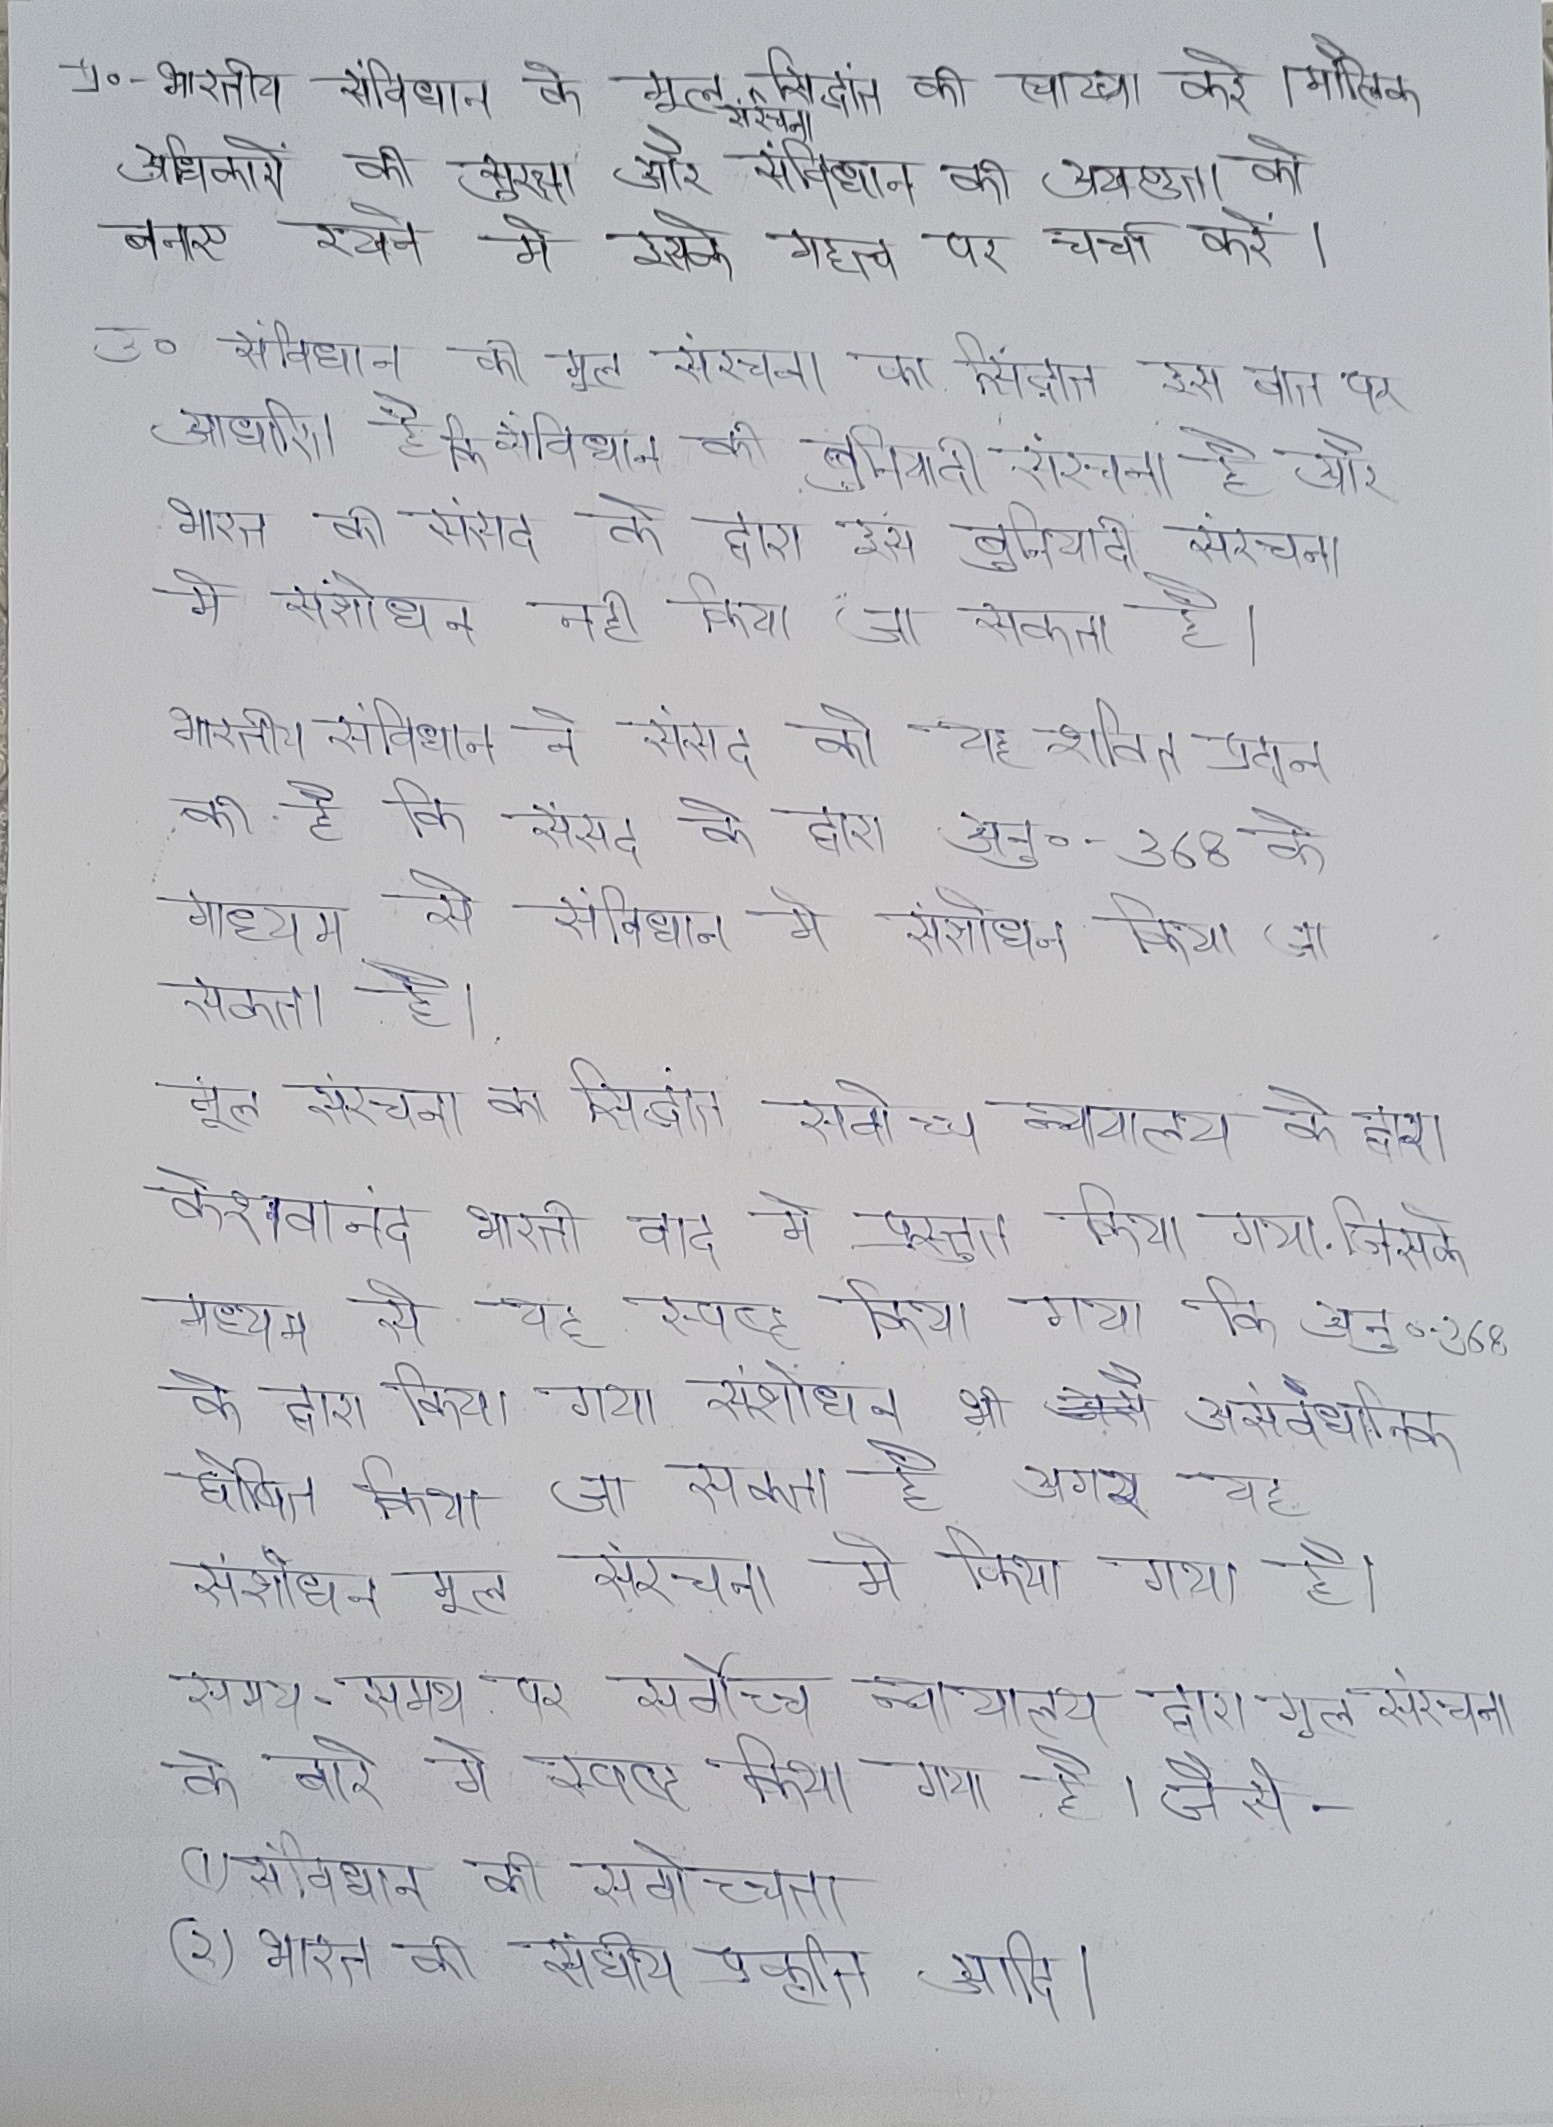 प्र०- भारतीय संविधान के मूल संरचना सिद्धांत की व्याख्या करे । मौलिक
अधिकारों की सुरक्षा और संविधान की अखण्डता को
बनाए रखने मे इसके महत्व पर चर्चा करें ।
उ० संविधान की मूल संरचना का सिद्धांत इस बात पर
आधारित है कि संविधान की बुनियादी संरचना है और
भारत की संसद के द्वारा इस बुनियादी संरचना
मे संशोधन नही किया जा सकता है ।
भारतीय संविधान ने संसद को यह शक्ति प्रदान
की है कि संसद के द्वारा अनु०- 368 के
माध्यम से संविधान मे संशोधन किया जा
सकता है ।
मूल संरचना का सिद्धांत सर्वोच्च न्यायालय के द्वारा
केशवानंद भारती वाद मे प्रस्तुत किया गया. जिसके
मध्यम से यह स्पष्ट किया गया कि अनु०-368
के द्वारा किया गया संशोधन भी असंवैधानिक
घोषित किया जा सकता है अगर यह
संशोधन मूल संरचना मे किया गया है ।
समय-समय पर सर्वोच्च न्यायालय द्वारा मूल संरचना
के बारे मे स्पष्ट किया गया है । जैसे -
(1) संविधान की सर्वोच्चता
(2) भारत की संघीय प्रकृति आदि ।